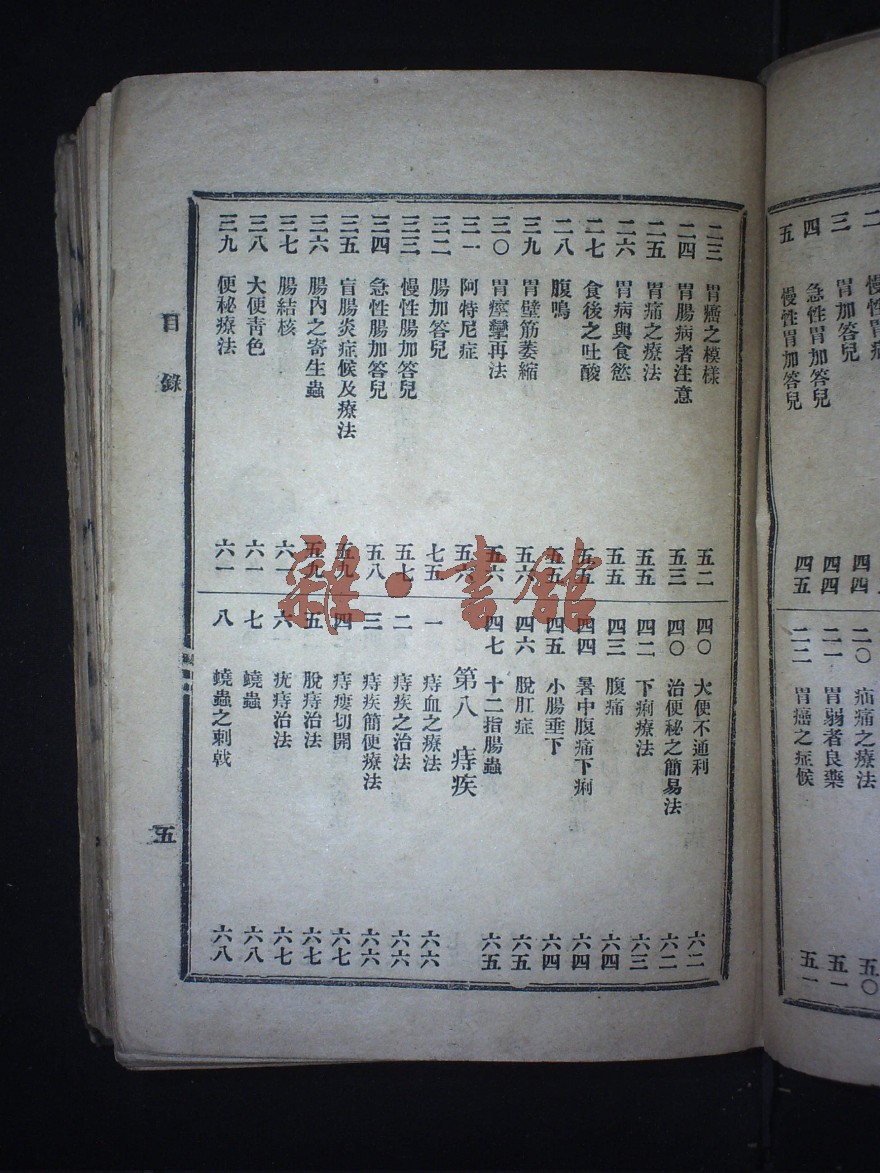 三 胃加答兒 四四
四 急性胃加答兒 四四
五 慢性胃加答兒 四五
二〇 疝痛之療法 五〇
二一 胃弱者良藥 五一
二二 胃癌之症候 五一
二三 胃癌之模樣 五二
二四 胃腸病者注意 五三
二五 胃痛之療法 五五
二六 胃病與食慾 五五
二七 食後之吐酸 五五
二八 腹鳴 五五
三九 胃壁筋萎縮 五六
三〇 胃痙攣再法 五六
三一 阿特尼症 五六
三二 腸加答兒 七五
三三 慢性腸加答兒 五七
三四 急性腸加答兒 五八
三五 盲腸炎症候及療法 五九
三六 腸內之寄生蟲 五九
三七 腸結核 六一
三八 大便青色 六一
三九 便秘療法 六一
四〇 大便不通利 六二
四〇 治便秘之簡易法 六二
四二 下痢療法 六三
四三 腹痛 六四
四四 暑中腹痛下痢 六四
四五 小腸垂下 六四
四六 脫肛症 六五
四七 十二指腸蟲 六五
第八 痔疾
一 痔血之療法 六六
二 痔疾之治法 六六
三 痔疾簡便療法 六六
四 痔瘻切開 六七
五 脫痔治法 六七
六 疣痔治法 六七
七 蟯蟲 六八
八 蟯蟲之刺戟 六八
目錄 五
雜·書館